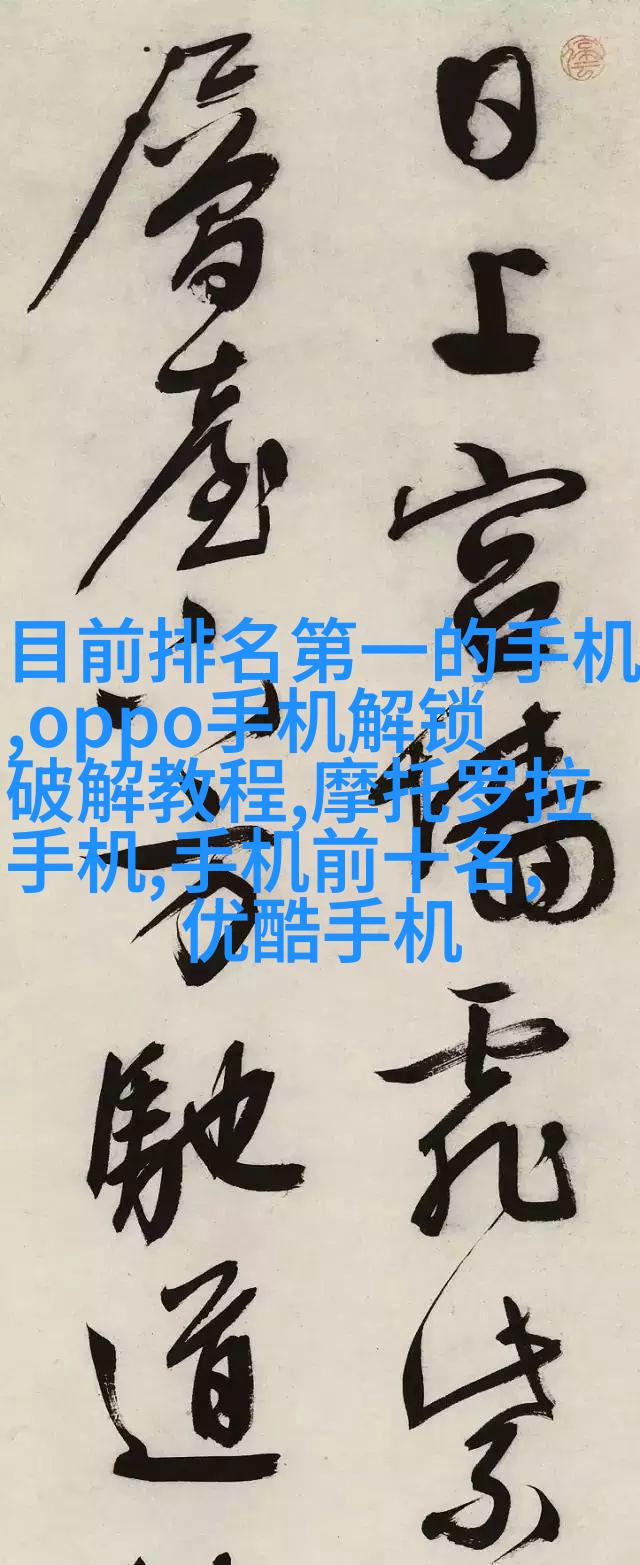 日上宮墻霏紫
層臺下方馳道
目前排名第一的手机
,oppo手机解锁
破解教程,摩托罗拉
手机,手机前十名,
优酷手机